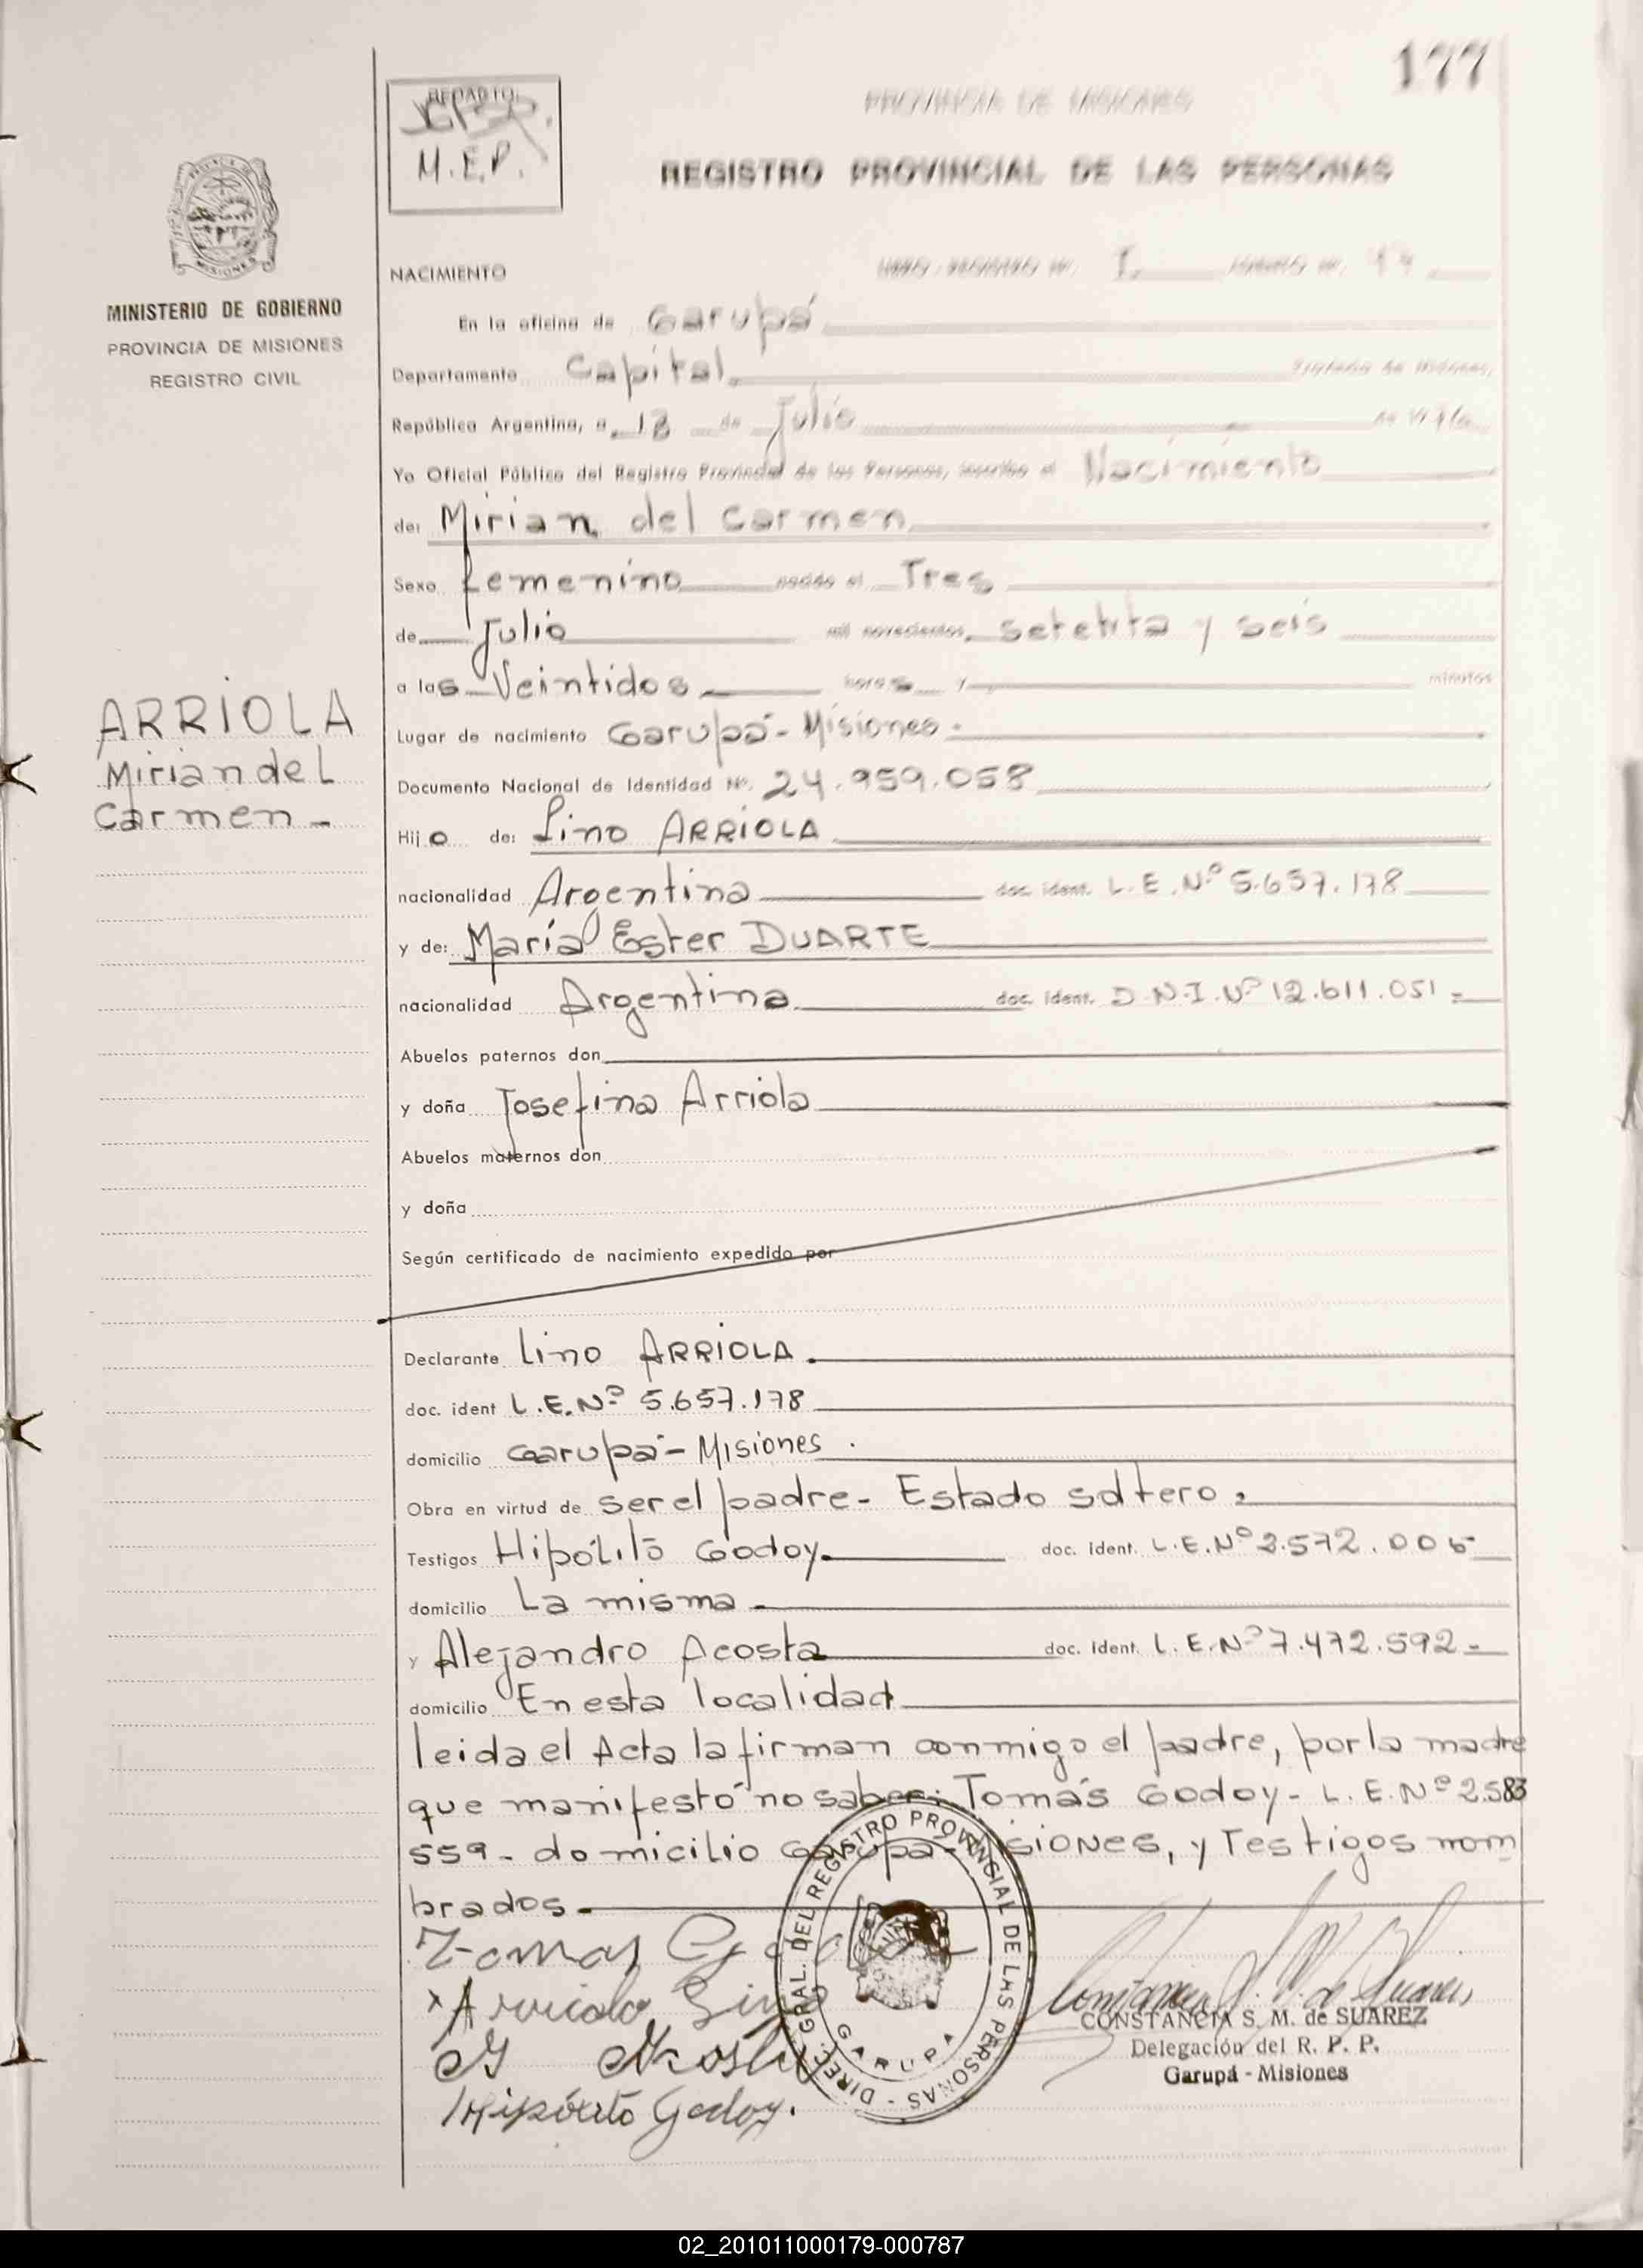 177
PROVINCIA DE MISIONES
REGISTRO PROVINCIAL DE LAS PERSONAS
M.E.P.
MINISTERIO DE GOBIERNO
PROVINCIA DE MISIONES
REGISTRO CIVIL
NACIMIENTO
En la oficina de Garupá
Departamento Capital
República Argentina, a 13 de Julio
Yo Oficial Público del Registro Provincial de las Personas, inscribo el Nacimiento
de: Mirian del Carmen
Sexo femenino nacido el Tres
de Julio mil novecientos setetnta y seis
a las Veintidos horas y minutos
Lugar de nacimiento Garupá - Misiones -
Documento Nacional de Identidad Nº. 24.959.058
ARRIOLA
Mirian del
Carmen -
Hijo de: Lino ARRIOLA
nacionalidad Argentina doc. ident. L.E.Nº 5.657.178
y de: María Ester DUARTE
nacionalidad Argentina doc. ident. D.N.I.Nº 12.611.051 =
Abuelos paternos don
y doña Josefina Arriola
Abuelos maternos don
y doña
Según certificado de nacimiento expedido por
Declarante Lino ARRIOLA.
doc. ident L.E.Nº 5.657.178
domicilio Garupá - Misiones.
Obra en virtud de ser el padre - Estado soltero.
Testigos Hipólito Godoy doc. ident. L.E.Nº 2.572.005
domicilio La misma
y Alejandro Acosta doc. ident. L.E.Nº 7.472.592 =
domicilio En esta localidad
leida el Acta la firman conmigo el padre, por la madre
que manifestó no saber: Tomás Godoy - L.E.Nº 2.583
559 - domicilio Garupá - Misiones, y Testigos nom
brados.
Tomas Godoy
x Arriola Lino
Acosta
Hipólito Godoy.
DIREC. GRAL. DEL REGISTRO PROVINCIAL DE LAS PERSONAS -
GARUPA
CONSTANCIA S. M. de SUAREZ
Delegación del R. P. P.
Garupá - Misiones
02_201011000179-000787